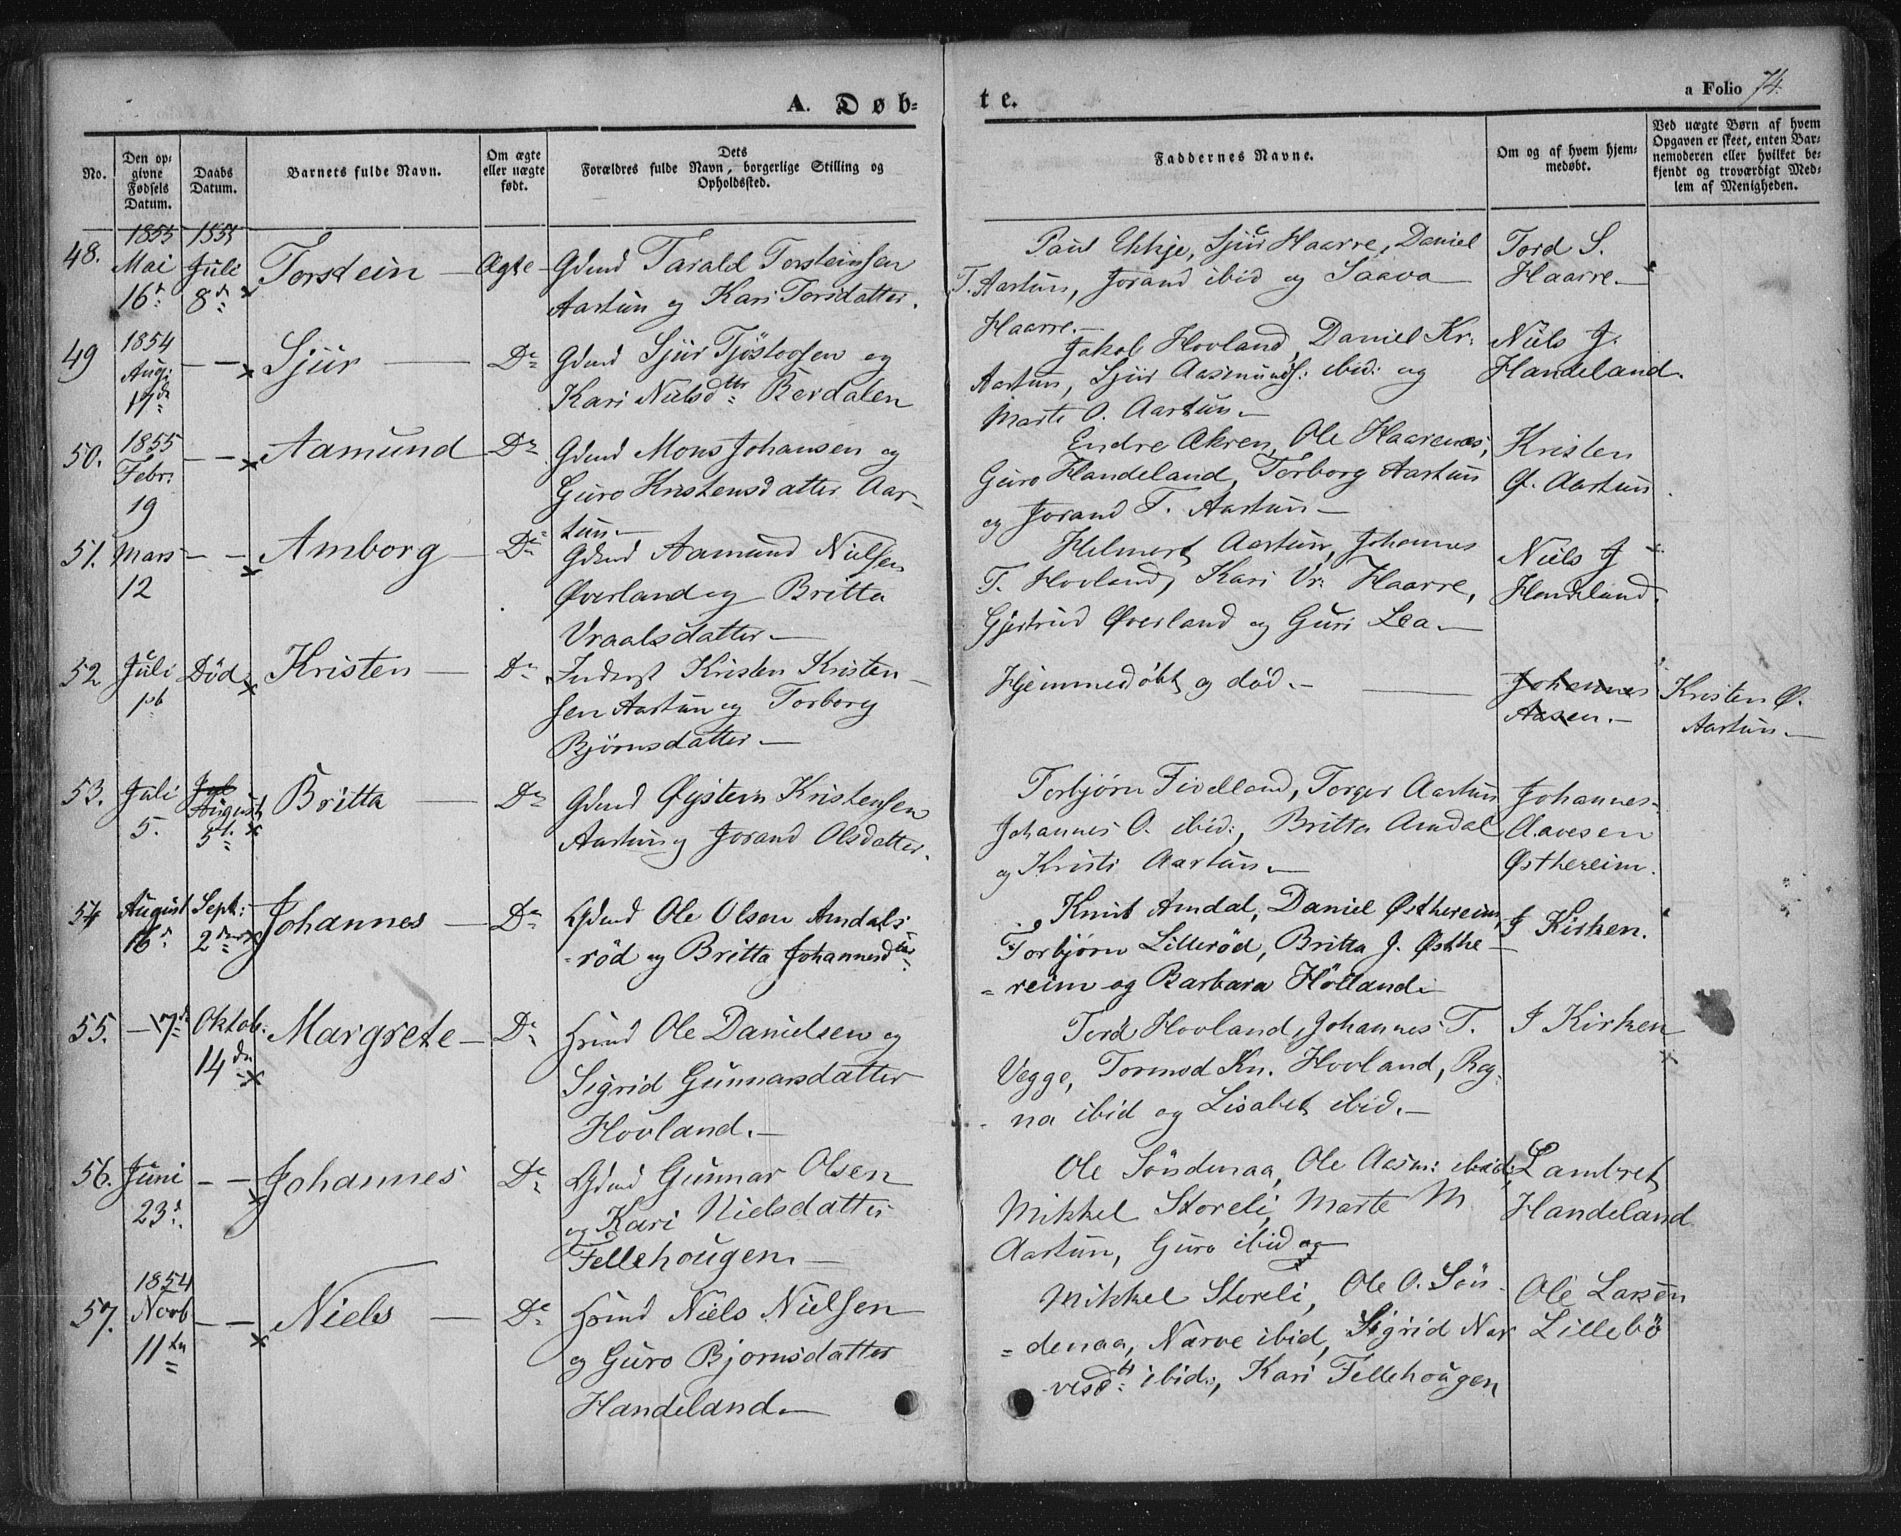 A. Døb-
te.
a Folio 74.
No.
Den op-
givne
Fødsels
Datum.
Daabs
Datum.
Barnets fulde Navn.
Om ægte
eller uægte
født.
Dets
Forældres fulde Navn, borgerlige Stilling og
Opholdssted.
Faddernes Navne.
Om og af hvem hjem-
medøbt.
Ved uægte Børn af hvem
Opgaven er skeet, enten Bar-
nemoderen eller hvilket be-
kjendt og troværdigt Med-
lem af Menigheden.
48.
1855
Mai
16d
1855
Juli
8d
Torstein
Ægte
Gdmd Tarald Torsteinsen
Aartun og Kari Torsdatter.
Paul Ekkje, Sjur Haarre, Daniel
T. Aartun, Jorand ibid og Saava
Haarre.
Tord S.
Haarre.
49
1854
Aug:
17de
Sjur
Do
Gdmd Sjur Tjöstovsen og
Kari Nielsdtr Berdalen
Jakob Hovland, Daniel Kr:
Aartun, Sjur Aasmunds: ibid: og
Marte O. Aartun.
Niels J.
Handeland.
50.
1855
Febr:
19
Aamund
Do
Gdmd Mons Johansen og
Guro Kristensdatter Aar-
tun.
Endre Akren, Ole Haarenæs,
Guro Handeland, Torborg Aartun
og Jorand T. Aartun.
Kristen
Ø. Aartun.
51.
Mars
12
Amborg
Do
Gdmd Aamund Nielsen
Øverland og Britta
Vraalsdatter.
Helmert Aartun, Johannes
T. Hovland, Kari Vr: Haarre,
Gjertrud Øverland og Guri Lea.
Niels J
Handeland.
52
Juli
Død
Kristen
Do
Inderst Kristen Kristen-
sen Aartun og Torborg
Bjørnsdatter.
Hjemmedøbt og død.
Johannes
Aasen.
Kristen Ø.
Aartun.
53.
Juli
5.
Jul
August
5t.
Britta
Do
Gdmd Øystein Kristensen
Aartun og Jorand Olsdatter.
Torbjørn Fivelland, Torger Aartun
Johannes O. ibid:, Britta Amdal
og Kristi Aartun.
Johannes
Aavesen
Østhereim.
54
August
16d
Sept:
2den
Johannes
Do
Gdmd Ole Olsen Amdals-
röd og Britta Johannesdtr
Knut Amdal, Daniel Østhereim,
Torbjørn Lillerød, Britta J. Østhe-
reim og Barbara Hölland.
I Kirken.
55.
17d
Oktob:
14de
Margrete
Do
Hsmd Ole Danielsen og
Sigrid Gunnarsdatter
Hovland.
Tord Hovland, Johannes T.
Vegge, Tormod Kn. Hovland, Rag-
na ibid og Lisabet ibid.
I Kirken
56.
Juni
23d.
Johannes
Do
Gdmd Gunnar Olsen
og Kari Nielsdatter
Fellehougen.
Ole Söndenaa, Ole Aasm: ibid:,
Mikkel Storeli, Marte M
Aartun, Guro ibid og
Lambret
Handeland
57.
1854
Novb
11te
Niels
Do
Hsmd Niels Nielsen
og Guro Bjornsdatter
Handeland.
Mikkel Storeli, Ole O. Sön-
denaa, Narve ibid, Sigrid Nar
vesdtr ibid:, Kari Fellehougen
Ole Larsen
Lillebö